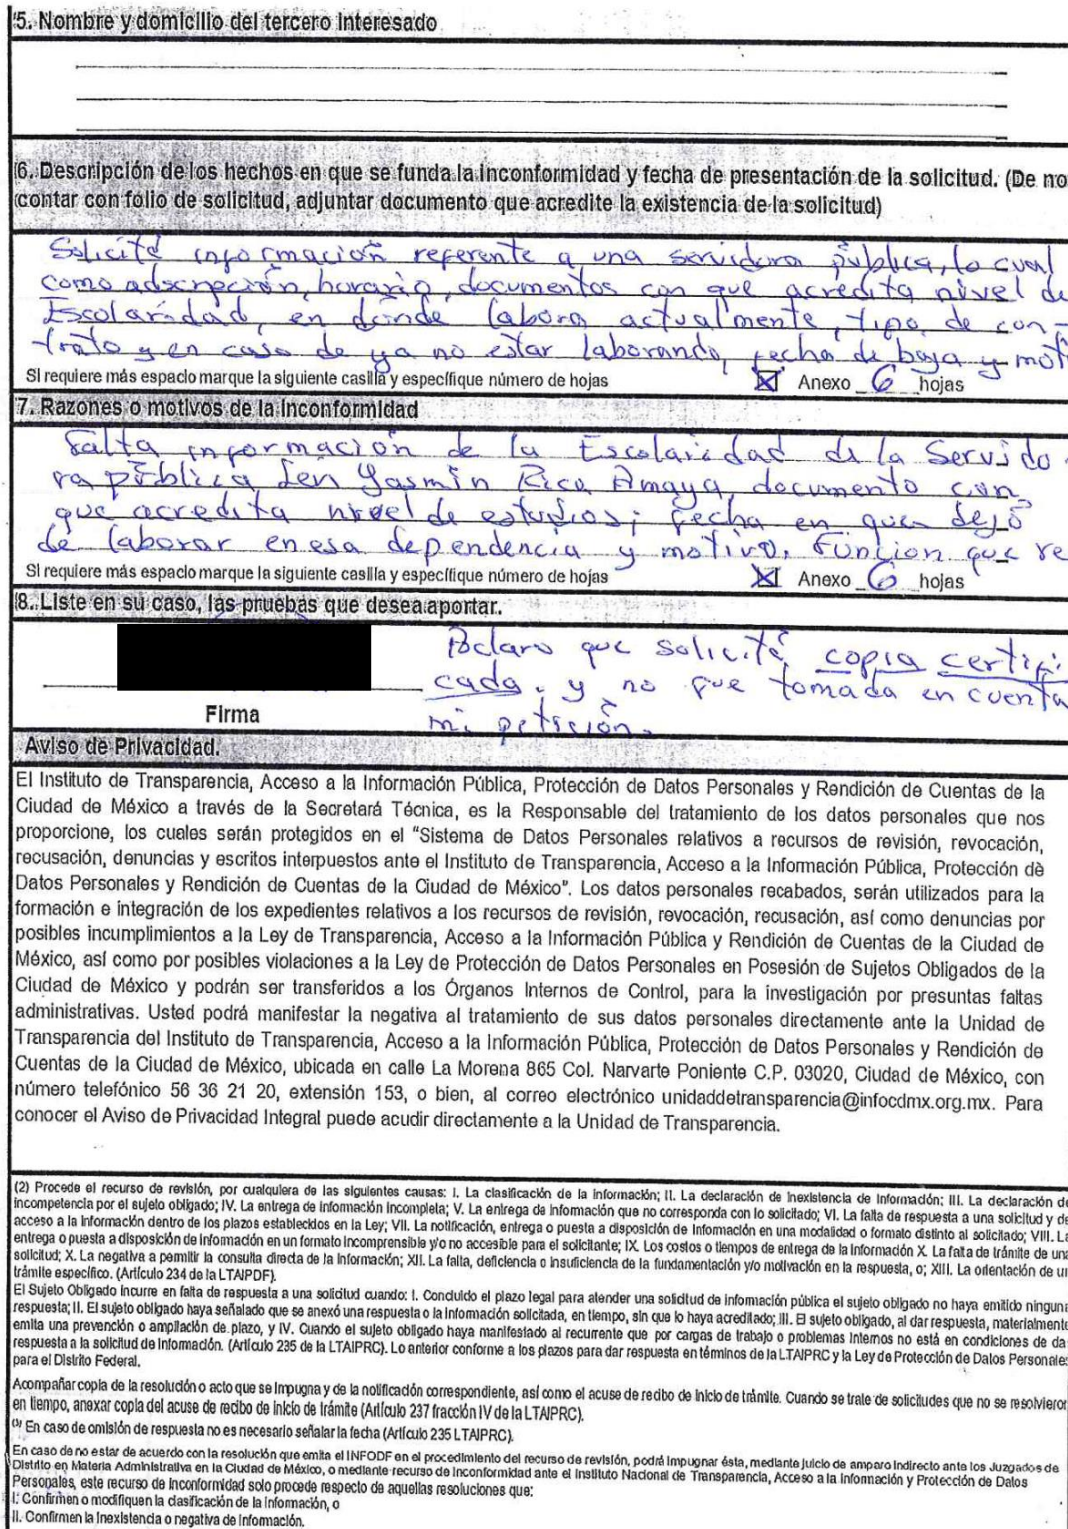 5. Nombre y domicilio del tercero interesado
6. Descripción de los hechos en que se funda la inconformidad y fecha de presentación de la solicitud. (De no
contar con folio de solicitud, adjuntar documento que acredite la existencia de la solicitud)
Solicité información referente a una servidora pública, lo cual
como adscripción, horario, documentos con que acredita nivel de
Escolaridad, en dónde labora actualmente, tipo de con-
trato y en caso de ya no estar laborando, fecha de baja y moti
Si requiere más espacio marque la siguiente casilla y especifique número de hojas Anexo 6 hojas
7. Razones o motivos de la inconformidad
Falta información de la Escolaridad de la Servido-
ra pública Yasmin Rico Amaya, documento con
que acredita nivel de estudios; fecha en que dejó
de laborar en esa dependencia y motivo. Función que re
Si requiere más espacio marque la siguiente casilla y especifique número de hojas Anexo 6 hojas
8. Liste en su caso, las pruebas que desea aportar.
Aclaro que solicité copia certifi-
cada, y no fue tomada en cuenta
mi petición.
Firma
Aviso de Privacidad.
El Instituto de Transparencia, Acceso a la Información Pública, Protección de Datos Personales y Rendición de Cuentas de la
Ciudad de México a través de la Secretará Técnica, es la Responsable del tratamiento de los datos personales que nos
proporcione, los cuales serán protegidos en el "Sistema de Datos Personales relativos a recursos de revisión, revocación,
recusación, denuncias y escritos interpuestos ante el Instituto de Transparencia, Acceso a la Información Pública, Protección de
Datos Personales y Rendición de Cuentas de la Ciudad de México". Los datos personales recabados, serán utilizados para la
formación e integración de los expedientes relativos a los recursos de revisión, revocación, recusación, así como denuncias por
posibles incumplimientos a la Ley de Transparencia, Acceso a la Información Pública y Rendición de Cuentas de la Ciudad de
México, así como por posibles violaciones a la Ley de Protección de Datos Personales en Posesión de Sujetos Obligados de la
Ciudad de México y podrán ser transferidos a los Órganos Internos de Control, para la investigación por presuntas faltas
administrativas. Usted podrá manifestar la negativa al tratamiento de sus datos personales directamente ante la Unidad de
Transparencia del Instituto de Transparencia, Acceso a la Información Pública, Protección de Datos Personales y Rendición de
Cuentas de la Ciudad de México, ubicada en calle La Morena 865 Col. Narvarte Poniente C.P. 03020, Ciudad de México, con
número telefónico 56 36 21 20, extensión 153, o bien, al correo electrónico unidaddetransparencia@infocdmx.org.mx. Para
conocer el Aviso de Privacidad Integral puede acudir directamente a la Unidad de Transparencia.
(2) Procede el recurso de revisión, por cualquiera de las siguientes causas: I. La clasificación de la información; II. La declaración de inexistencia de información; III. La declaración de
incompetencia por el sujeto obligado; IV. La entrega de información incompleta; V. La entrega de información que no corresponda con lo solicitado; VI. La falta de respuesta a una solicitud y de
acceso a la información dentro de los plazos establecidos en la Ley; VII. La notificación, entrega o puesta a disposición de información en una modalidad o formato distinto al solicitado; VIII. La
entrega o puesta a disposición de información en un formato incomprensible y/o no accesible para el solicitante; IX. Los costos o tiempos de entrega de la información X. La falta de trámite de una
solicitud; X. La negativa a permitir la consulta directa de la información; XII. La falta, deficiencia o insuficiencia de la fundamentación y/o motivación en la respuesta, o; XIII. La orientación de un
trámite específico. (Artículo 234 de la LTAIPDF).
El Sujeto Obligado incurre en falta de respuesta a una solicitud cuando: I. Concluido el plazo legal para atender una solicitud de información pública el sujeto obligado no haya emitido ninguna
respuesta; II. El sujeto obligado haya señalado que se anexó una respuesta o la información solicitada, en tiempo, sin que lo haya acreditado; III. El sujeto obligado, al dar respuesta, materialmente
emita una prevención o ampliación de plazo, y IV. Cuando el sujeto obligado haya manifestado al recurrente que por cargas de trabajo o problemas internos no está en condiciones de da
respuesta a la solicitud de información. (Artículo 235 de la LTAIPRC). Lo anterior conforme a los plazos para dar respuesta en términos de la LTAIPRC y la Ley de Protección de Datos Personales
para el Distrito Federal.
Acompañar copia de la resolución o acto que se impugna y de la notificación correspondiente, así como el acuse de recibo de inicio de trámite. Cuando se trate de solicitudes que no se resolvieron
en tiempo, anexar copia del acuse de recibo de inicio de trámite (Artículo 237 fracción IV de la LTAIPRC).
(3) En caso de omisión de respuesta no es necesario señalar la fecha (Artículo 235 LTAIPRC).
En caso de no estar de acuerdo con la resolución que emita el INFODF en el procedimiento del recurso de revisión, podrá impugnar ésta, mediante juicio de amparo indirecto ante los Juzgados de
Distrito en Materia Administrativa en la Ciudad de México, o mediante recurso de inconformidad ante el Instituto Nacional de Transparencia, Acceso a la Información y Protección de Datos
Personales, este recurso de inconformidad solo procede respecto de aquellas resoluciones que:
I. Confirmen o modifiquen la clasificación de la información, o
II. Confirmen la inexistencia o negativa de información.